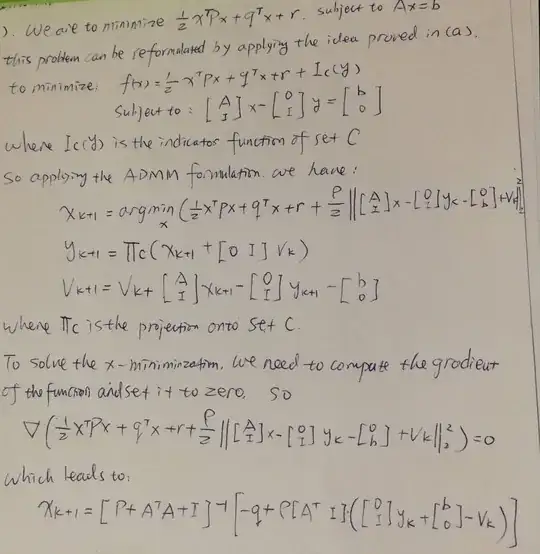 ). We are to minimize ½ xᵀPx + qᵀx + r. subject to Ax=b
this problem can be reformulated by applying the idea proved in (a).
to minimize: f(x) = ½ xᵀPx + qᵀx + r + Ic(y)
Subject to: [A; I] x - [0; I] y = [b; 0]
where Ic(y) is the indicator function of set C
So applying the ADMM formulation. we have:
Xk+1 = argmin x (½ xᵀPx + qᵀx + r + ρ/2 ||[A; I] x - [0; I] yk - [0; b] + Vk||₂²
yk+1 = Πc (Xk+1 + [0 I] Vk)
Vk+1 = Vk + [A; I] Xk+1 - [0; I] yk+1 - [b; 0]
where Πc is the projection onto set C.
To solve the x-miniminzation. we need to compute the grodient
of the function and set it to zero. so
∇(½ xᵀPx + qᵀx + r + ρ/2 ||[A; I] x - [0; I] yk - [0; b] + Vk||₂²) = 0
which leads to:
Xk+1 = [P + AᵀA + I]⁻¹ [-q + ρ[Aᵀ I]·([0; I] yk + [b; 0] - Vk)]